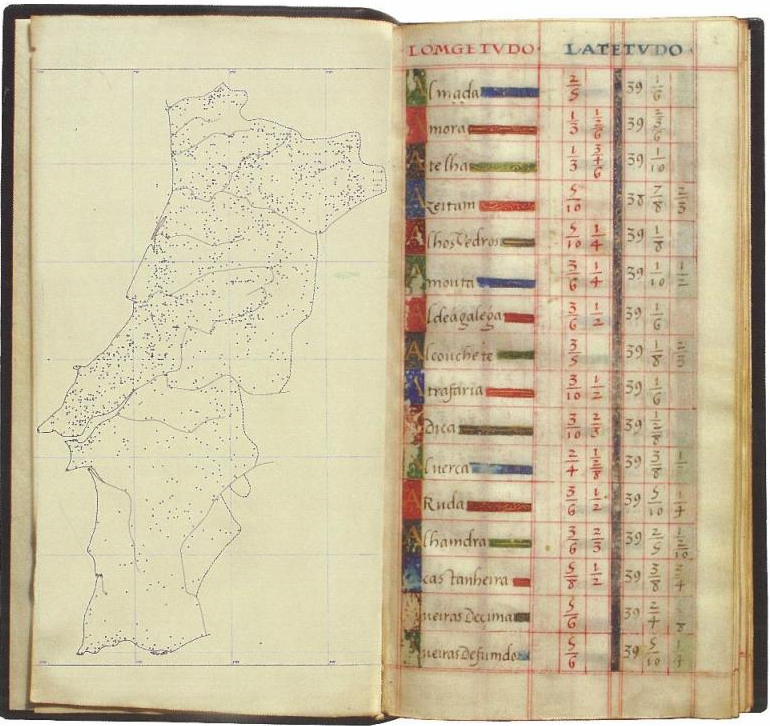 LOMGETVDO LATETVDO
Almada 2/5 39 1/6
Amora 1/3 39
Atelha 1/3 39 1/10
Azeitam 5/10 38 7/8 2/3
AlhosVedros 5/10 1/4 39 1/8
Amouta 3/6 1/4 39 1/10 1/2
Aldeagalega 3/6 1/2 39 1/6
Alcouchete 3/5 39 1/8 2/3
Atrafaria 3/10 1/2 39 1/6
Dica 3/10 2/3 39
Aluerca 2/4 39 3/8
ARuda 3/6 1/2 39 5/10 1/4
Alhamdra 3/6 2/3 39 2/5
Acastanheira 5/8 1/2 39 3/8 2/4
ueirasDecima 5/6 39 2/4
ueirasDefumdo 5/6 39 5/10 1/4